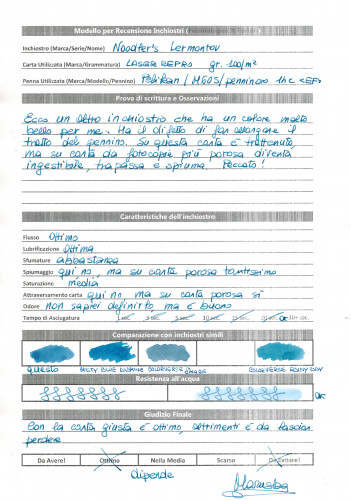 Modello per Recensione Inchiostri
Inchiostro (Marca/Serie/Nome) Noodler's Lermontov
Carta Utilizzata (Marca/Grammatura) LASER REPRO gr. 100/m²
Penna Utilizzata (Marca/Modello/Pennino) Pelikan / M605 / pennino
Prova di scrittura e Osservazioni
Ecco un altro inchiostro che ha un colore molto
bello per me. Ha il difetto di far allargare il
tratto del pennino. Su questa carta è trattenuto,
ma su carta da fotocopie più porosa diventa
ingestibile, trapassa e spiuma. Peccato!
Caratteristiche dell'inchiostro
Flusso Ottimo
Lubrificazione Ottima
Sfumature abbastanza
Spiumaggio qui no, ma su carta porosa tantissimo
Saturazione media
Attraversamento carta qui no, ma su carta porosa sì
Odore non saprei definirlo, ma è buono
Tempo di Asciugatura 1 sec. 3 sec. 5 sec. 10 sec. 15 sec. 20 sec. 30+ sec.
Comparazione con inchiostri simili
questo
Resistenza all'acqua
Giudizio Finale
Con la carta giusta è ottimo, altrimenti è da lasciar
perdere
Da Avere! Ottimo Nella Media Scarso Da Evitare!
dipende